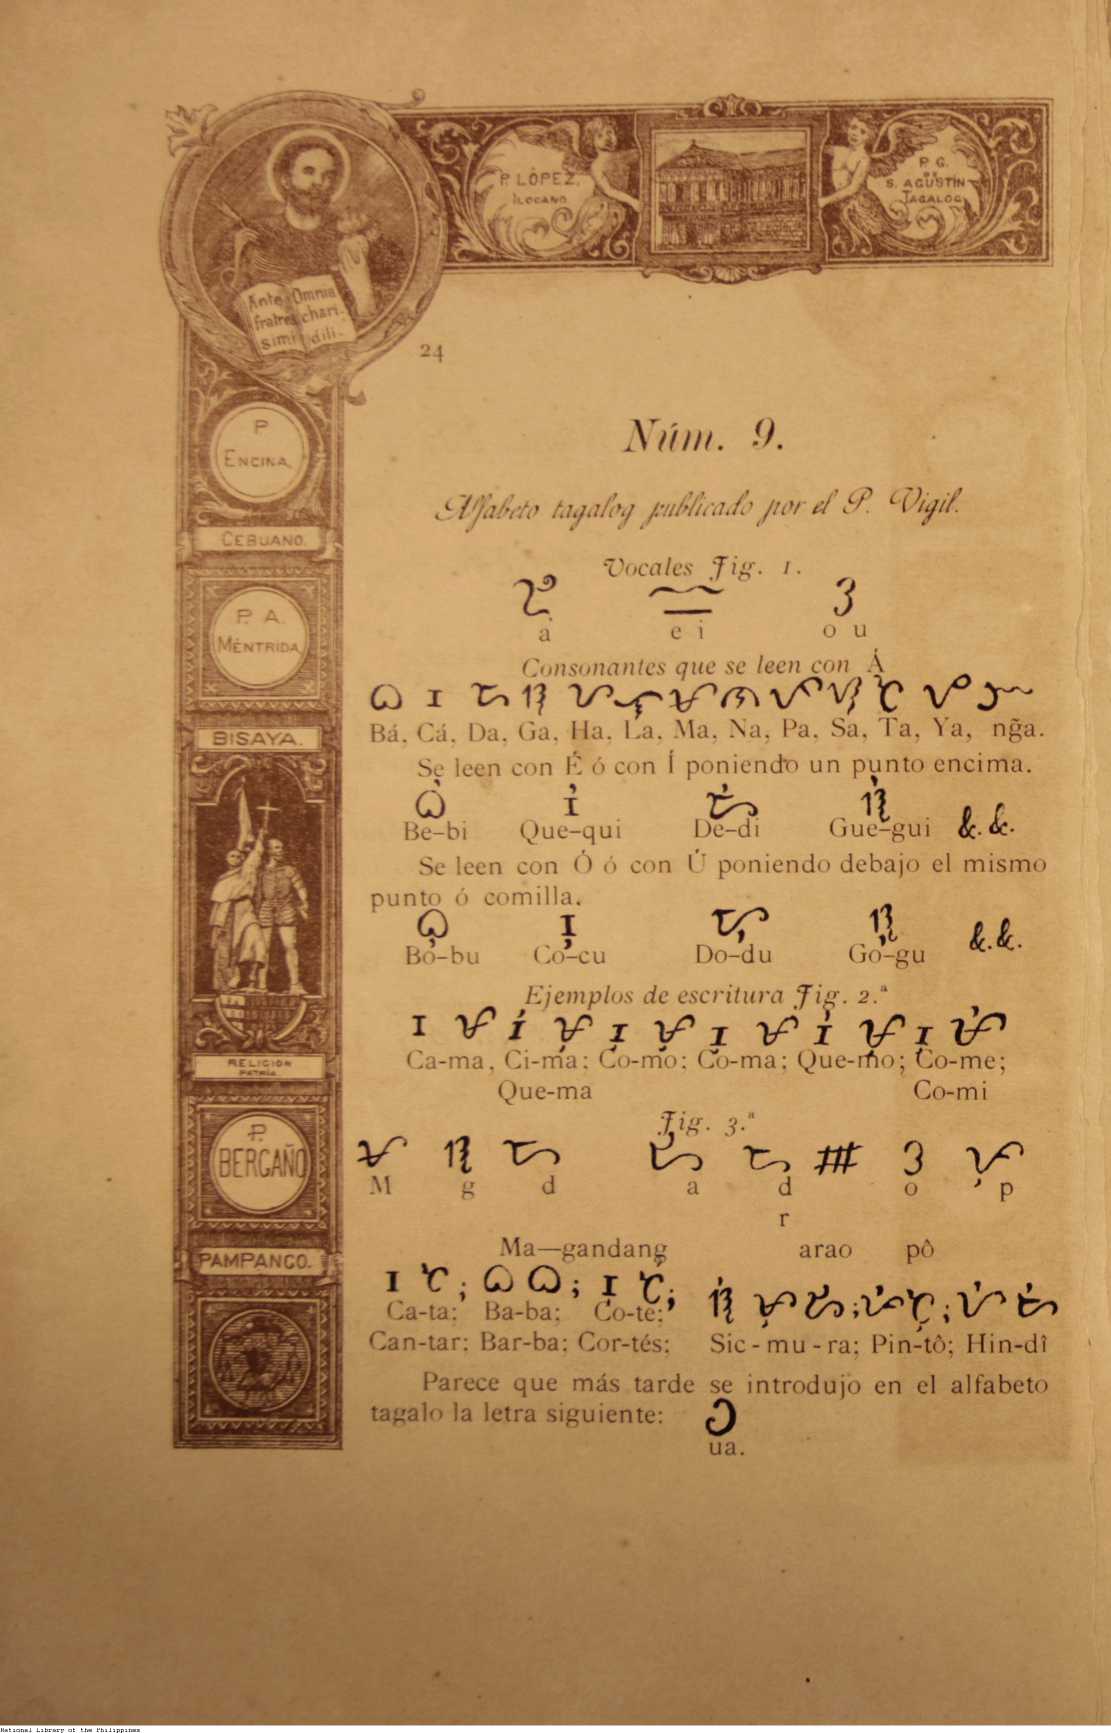 P. LÓPEZ.
ILOCANO
P. G.
DE
S. AGUSTIN
TAGALOG
Ante Omnia
fratres chari-
simi dili-
24
P
ENCINA.
CEBUANO.
P. A.
MÉNTRIDA
BISAYA.
RELIGION
PATRIA
P.
BERGAÑO
PAMPANGO.
Núm. 9.
Alfabeto tagalog publicado por el P. Vigil.
Vocales Fig. 1.
ᜀ ᜁ ᜂ
a e i o u
Consonantes que se leen con Á
ᜊ ᜃ ᜇ ᜄ ᜑ ᜎ ᜋ ᜈ ᜉ ᜐ ᜆ ᜌ ᜅ
Bá, Cá, Da, Ga, Ha, La, Ma, Na, Pa, Sa, Ta, Ya, ng̃a.
Se leen con É ó con Í poniendo un punto encima.
ᜊᜒ ᜃᜒ ᜇᜒ ᜄᜒ
Be–bi Que–qui De–di Gue–gui &. &.
Se leen con Ó ó con Ú poniendo debajo el mismo
punto ó comilla.
ᜊᜓ ᜃᜓ ᜇᜓ ᜄᜓ
Bo–bu Co–cu Do–du Go–gu &. &.
Ejemplos de escritura Fig. 2.ª
ᜃ ᜋ ᜃᜒ ᜋ ᜃᜓ ᜋᜓ ᜃᜓ ᜋ ᜃᜒ ᜋᜓ ᜃᜓ ᜋᜒ
Ca-ma, Ci-ma; Co-mo; Co-ma; Que-mo; Co-me;
Que-ma Co-mi
Fig. 3.ª
ᜋ ᜄ ᜇ ᜀ ᜇ ᜂ ᜉᜓ
M g d a d o p
r
Ma—gandang arao pô
ᜃ ᜆ ; ᜊ ᜊ ; ᜃᜓ ᜆᜒ ; ᜐᜒ ᜋᜓ ᜇ ; ᜉᜒ ᜆᜓ ; ᜑᜒ ᜇᜒ
Ca-ta; Ba-ba; Co-te;
Can-tar; Bar-ba; Cor-tés; Sic - mu - ra; Pin-tô; Hin-dî
Parece que más tarde se introdujo en el alfabeto
tagalo la letra siguiente: ᜏ
ua.
National Library of the Philippines